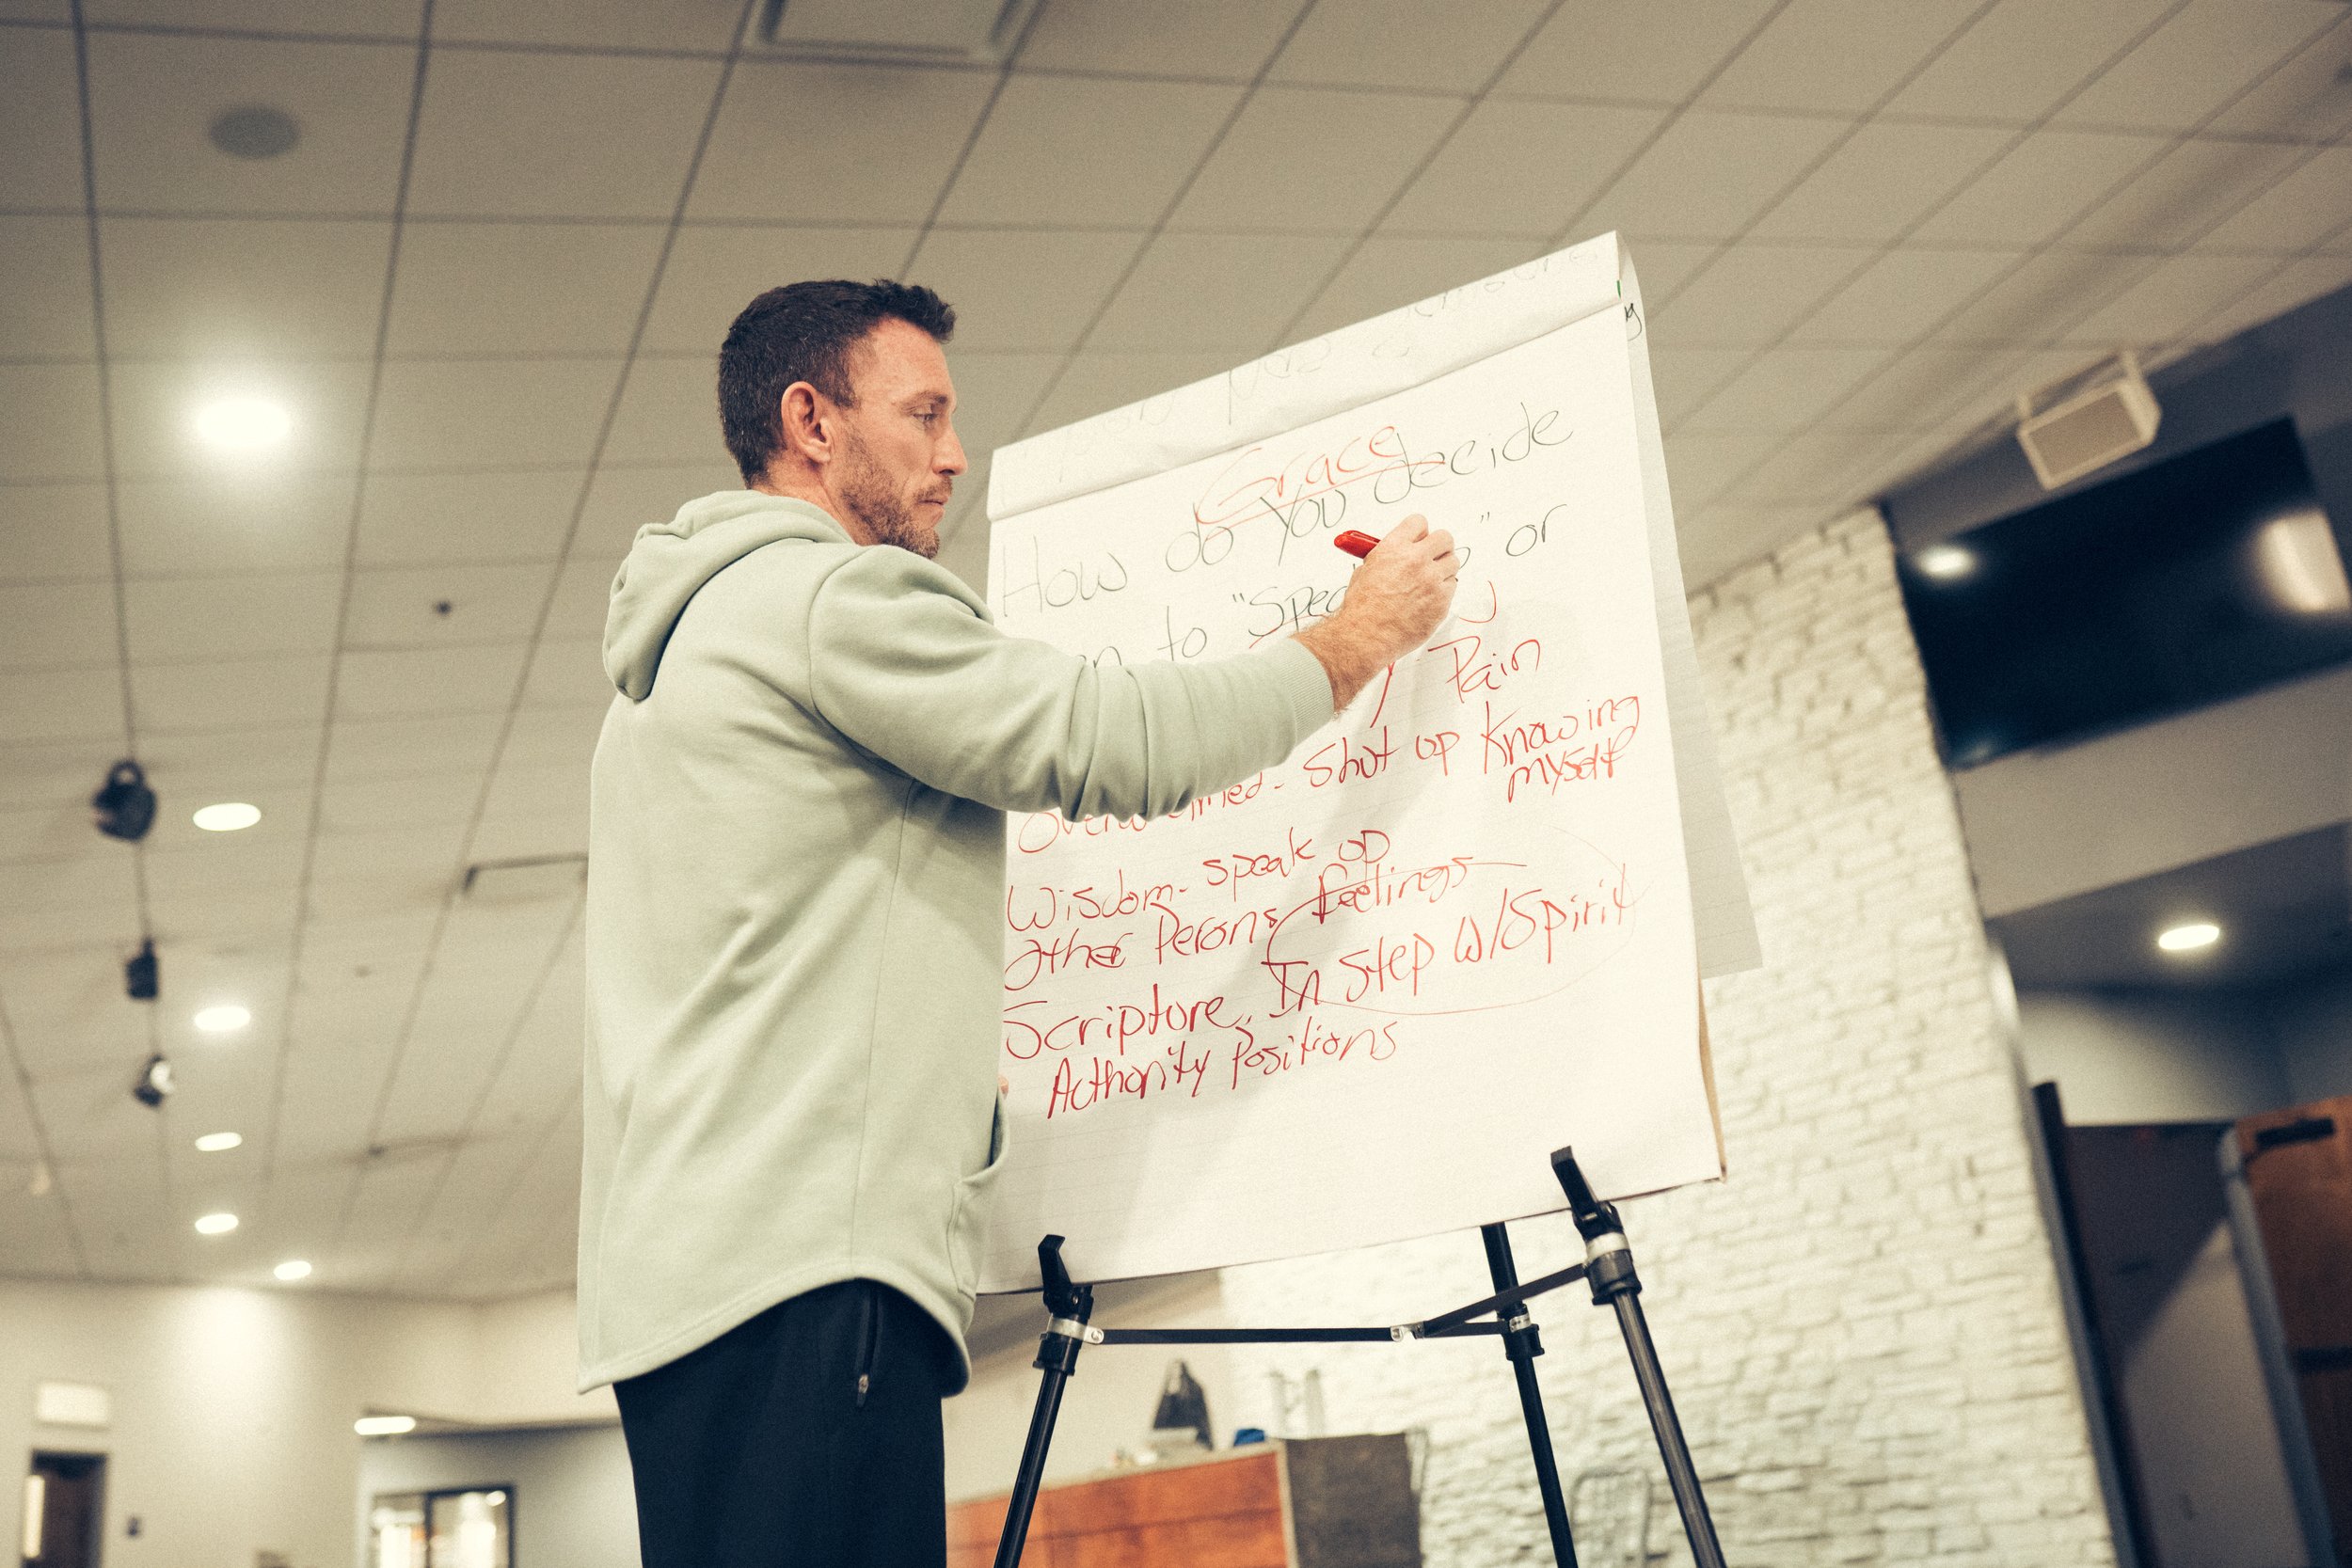 Grace
How do you decide
to "Speak up" or
Pain
Overwhelmed- Shut up Knowing
myself
Wisdom- speak up
Other Persons feelings
Scripture, In Step w/Spirit
Authority Positions